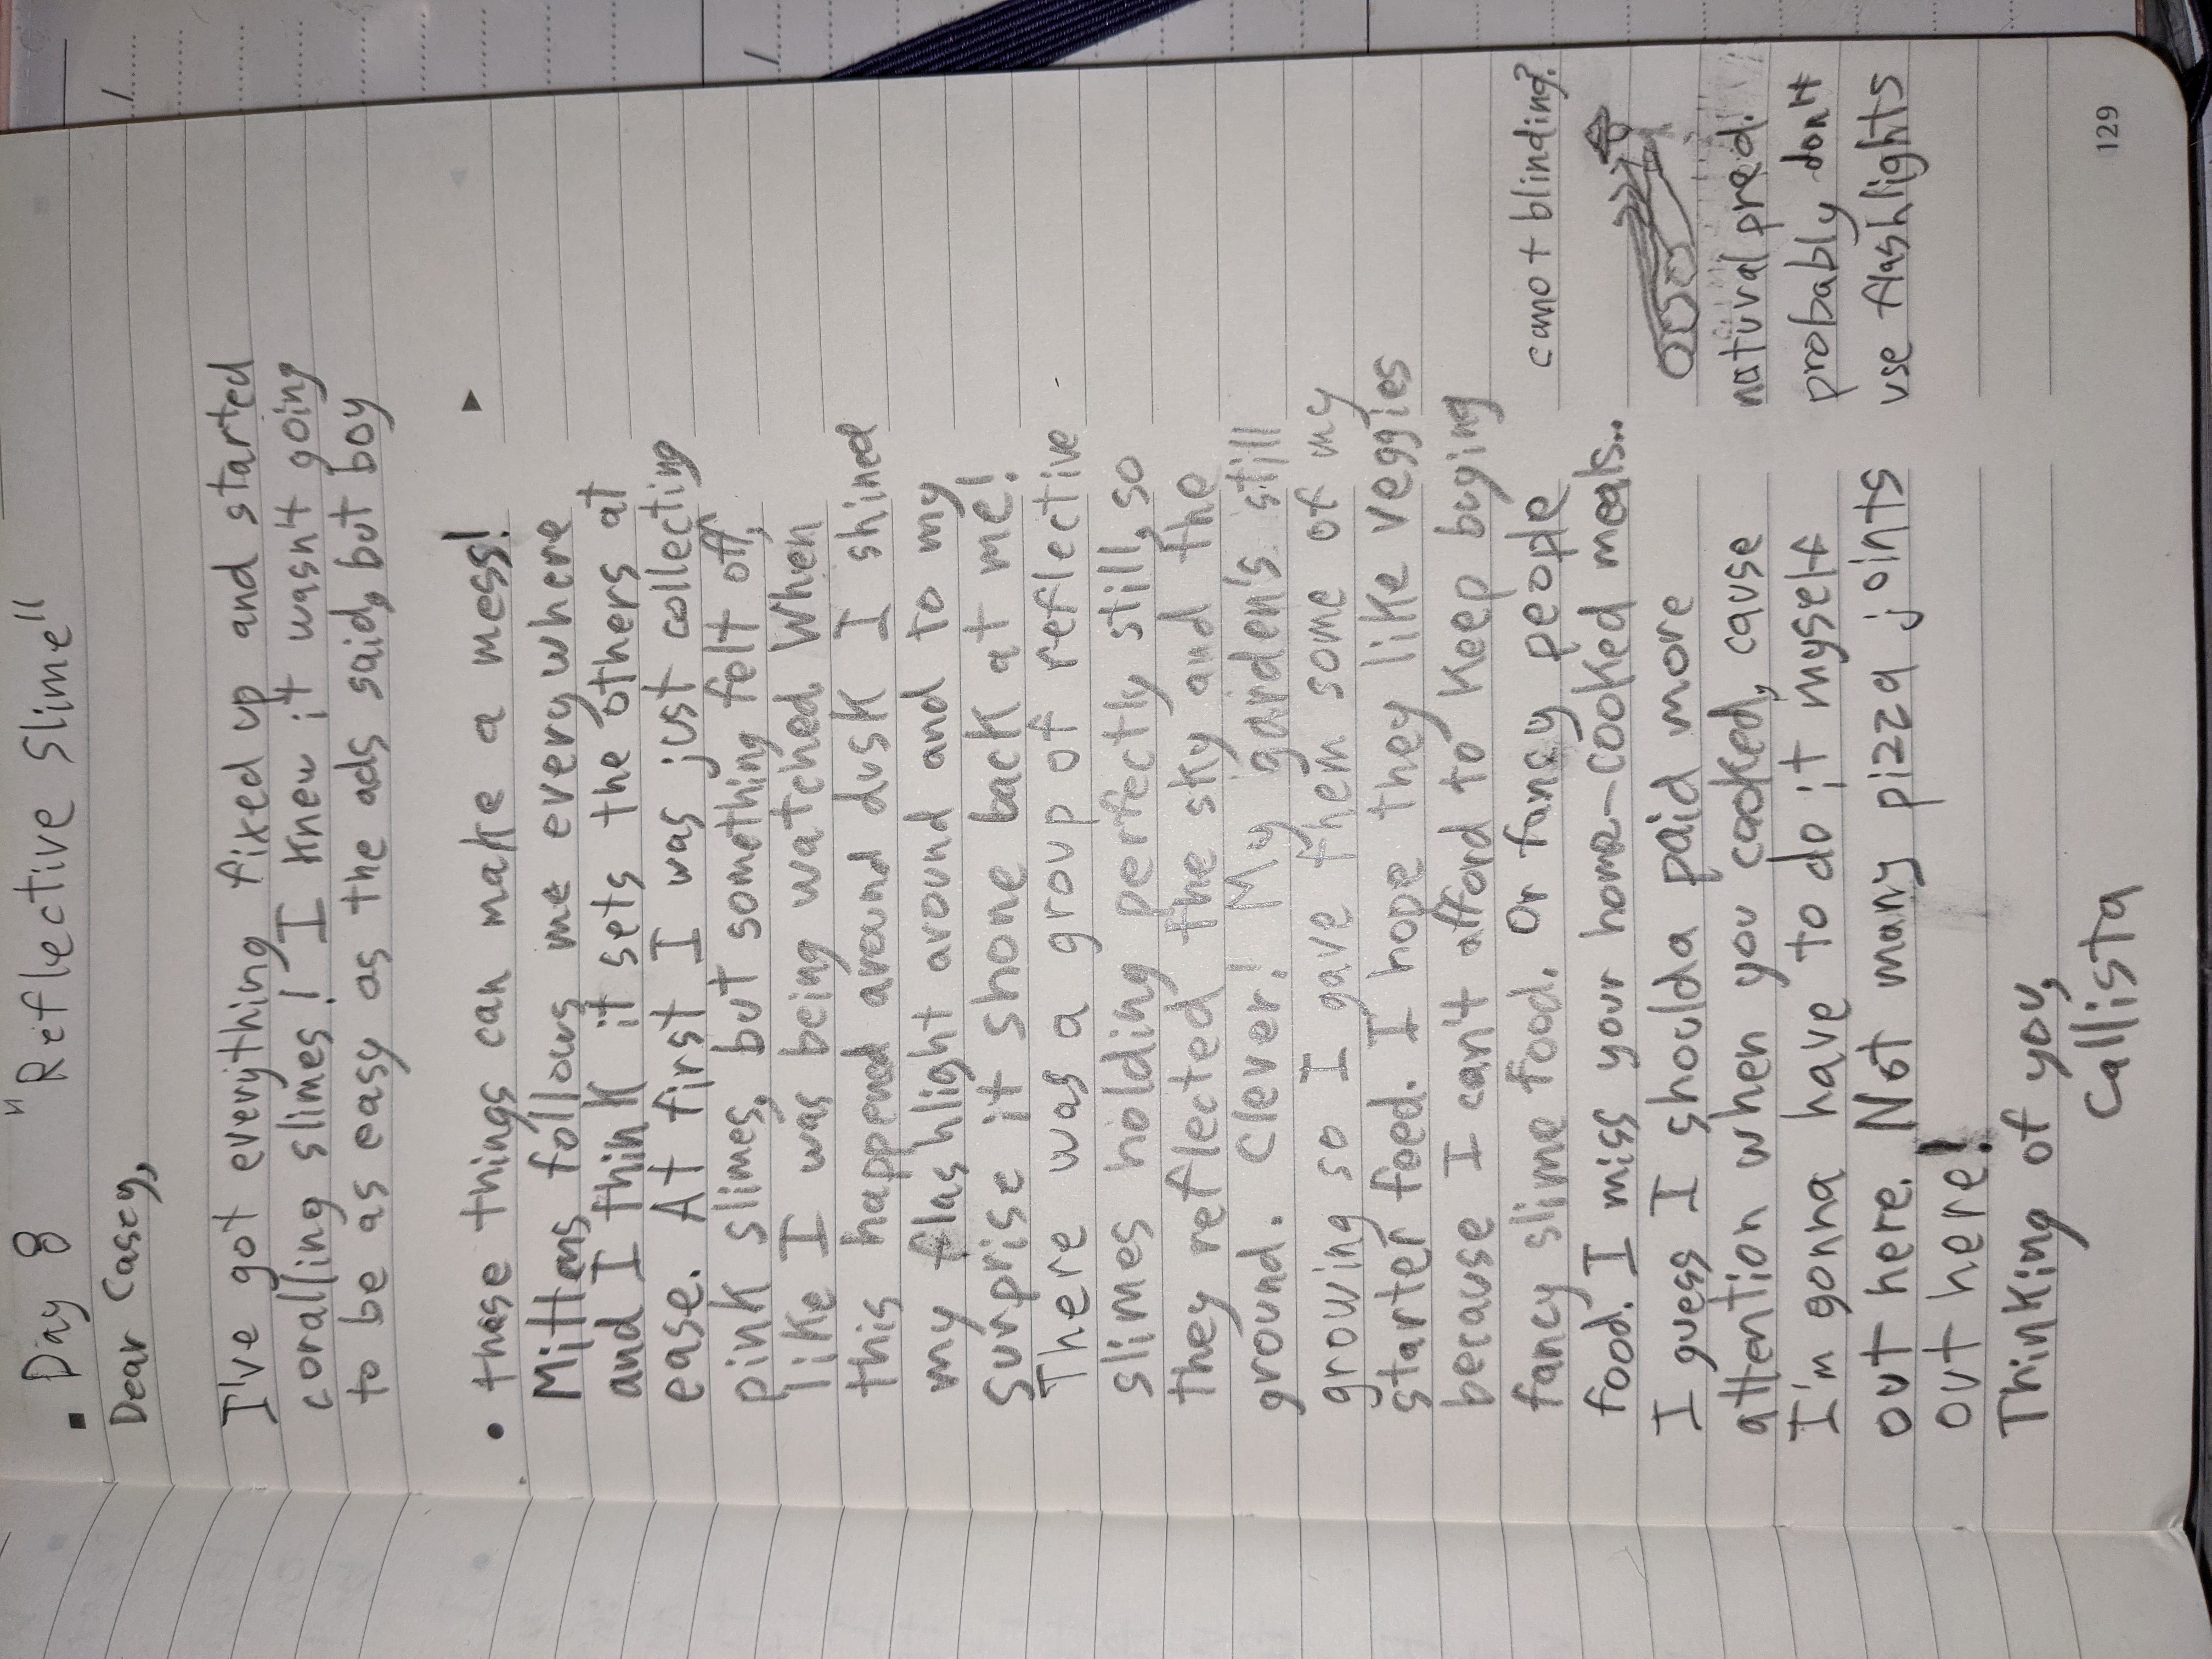 Day 8 "Reflective Slime"
Dear Casey,
I've got everything fixed up and started
coralling slimes! I knew it wasn't going
to be as easy as the ads said, but boy
these things can make a mess!
Mittens follows me everywhere
and I think it sets the others at
ease. At first I was just collecting
pink slimes, but something felt off,
like I was being watched. When
this happened around dusk I shined
my flashlight around and to my
surprise it shone back at me!
There was a group of reflective
slimes holding perfectly still, so
they reflected the sky and the
ground. Clever! My garden's still
growing so I gave them some of my
starter feed. I hope they like veggies
because I can't afford to keep buying
fancy slime food. Or fancy people
food. I miss your home-cooked meals..
I guess I shoulda paid more
attention when you cooked, cause
I'm gonna have to do it myself
out here. Not many pizza joints
out here!
Thinking of you,
Callista
camo + blinding?
natural pred.
probably don't
use flashlights
129